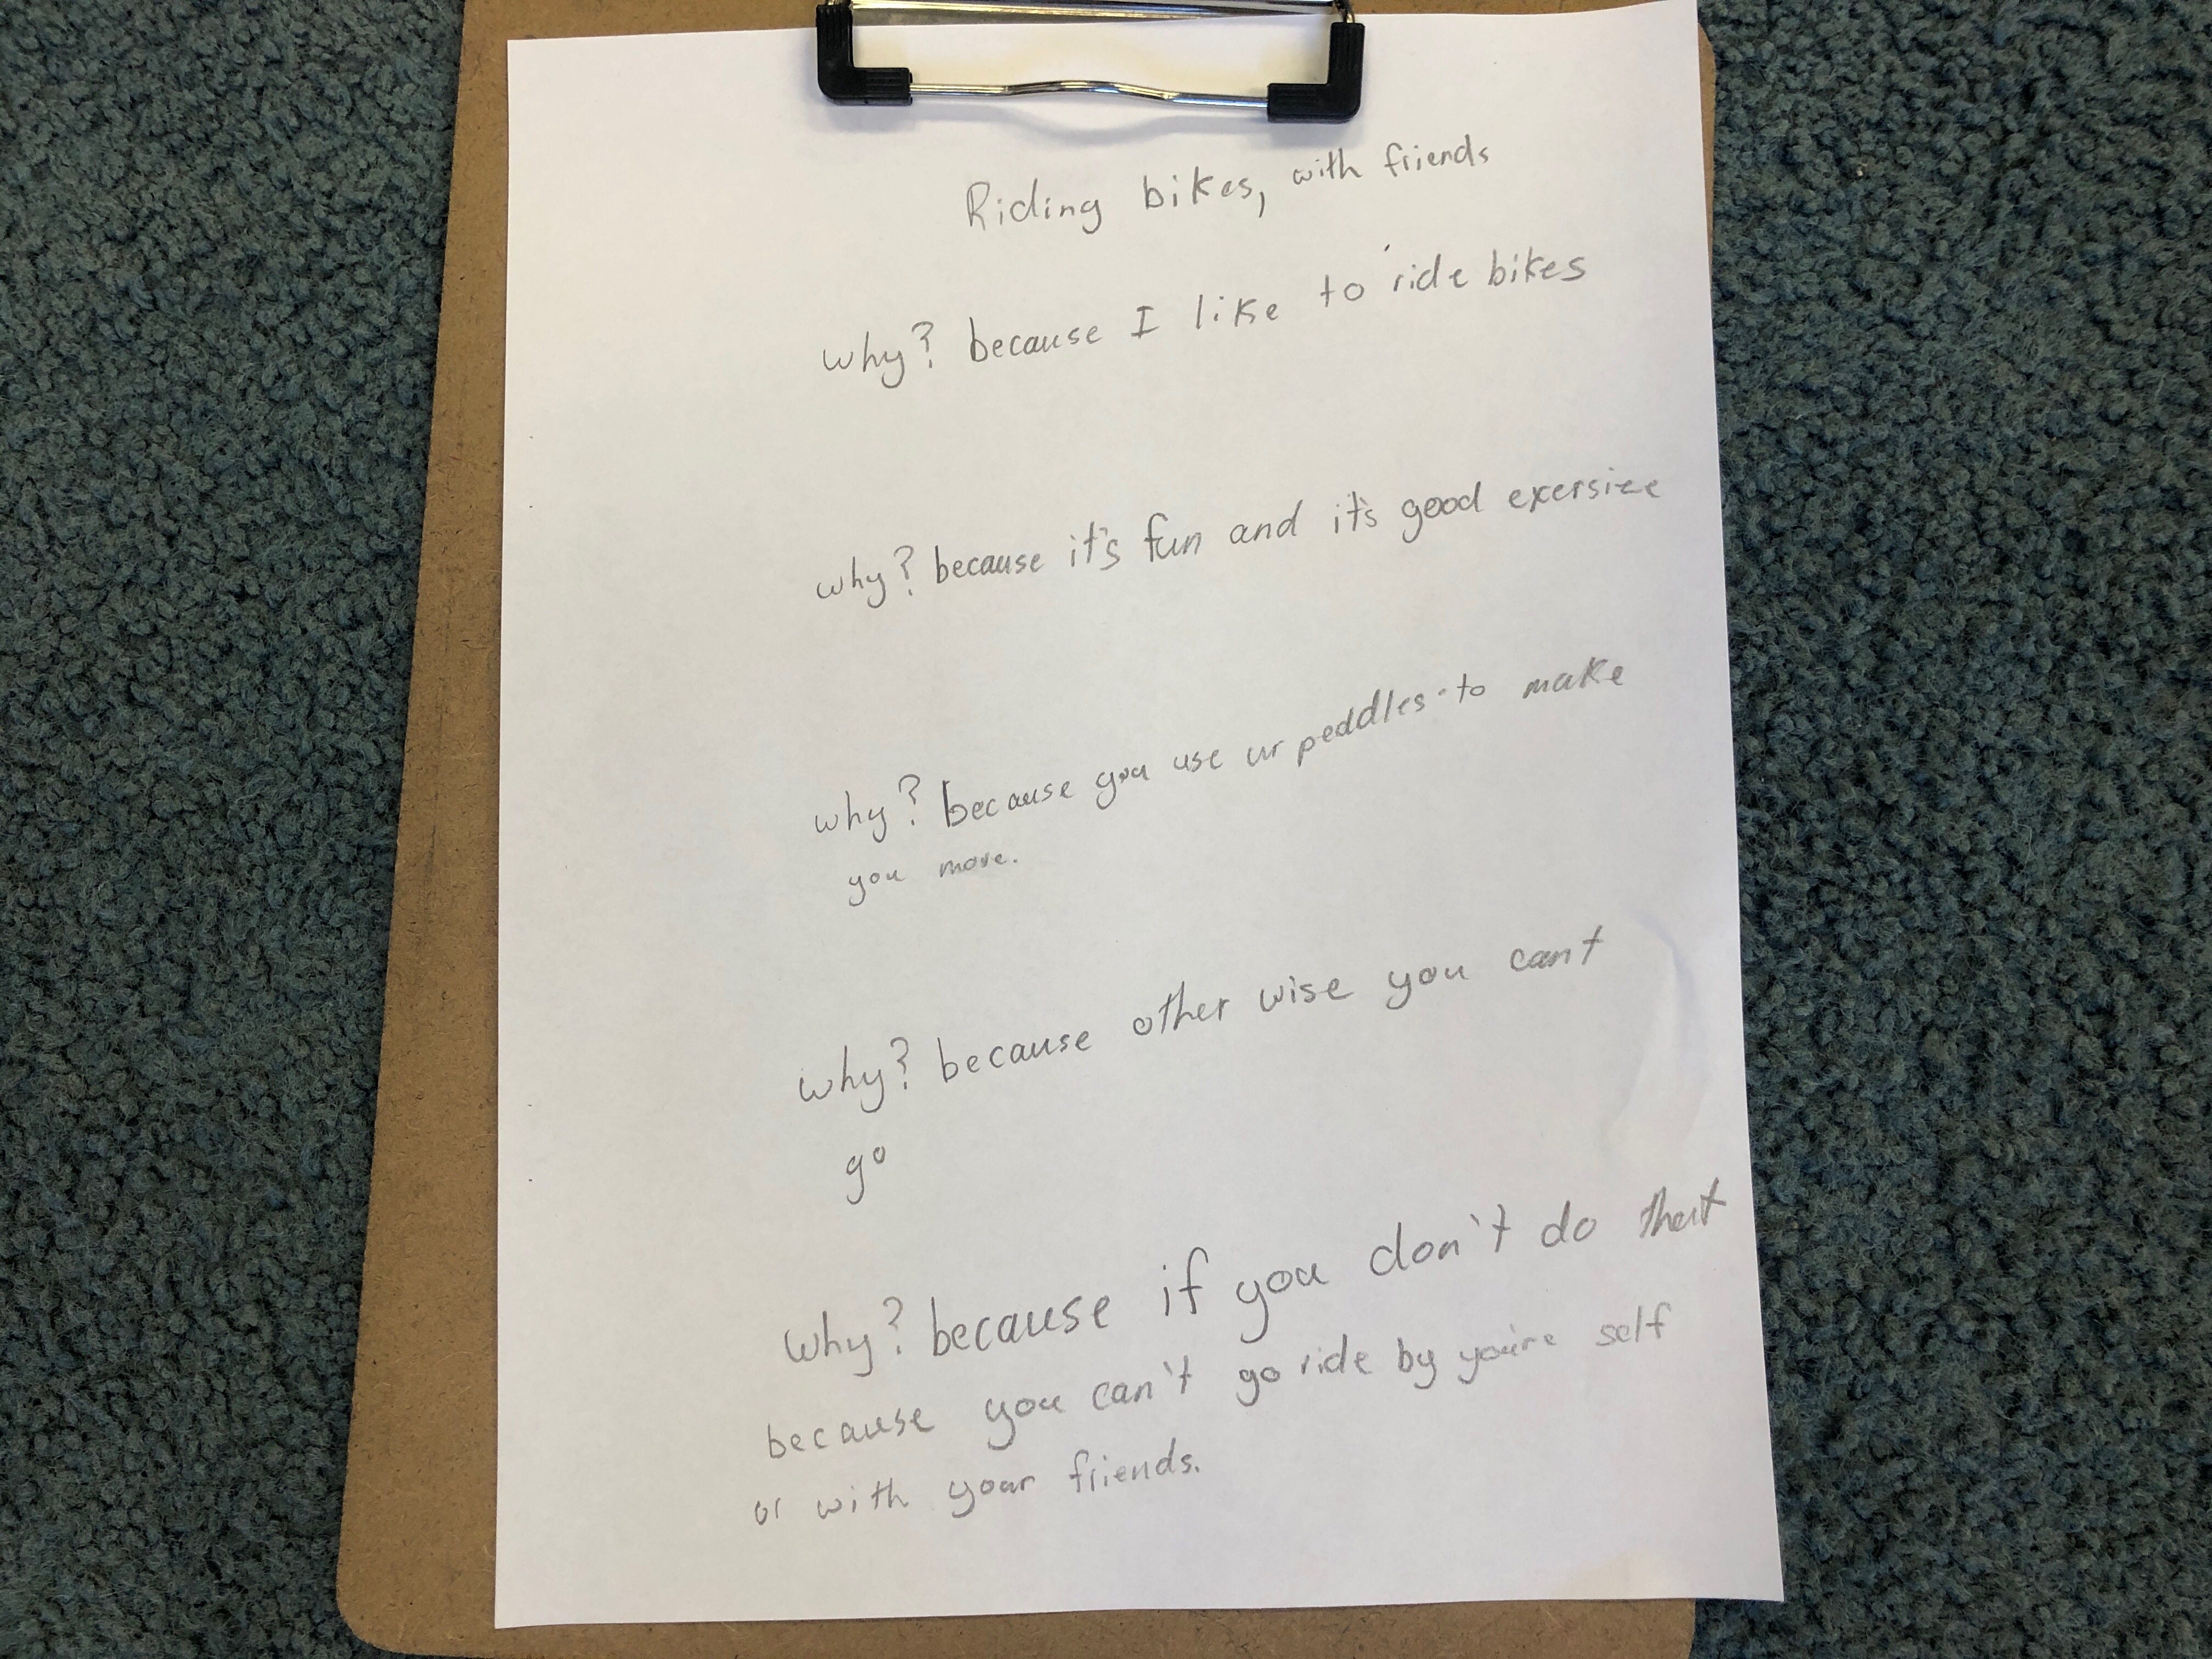 Riding bikes, with friends
why? because I like to ride bikes
why? because it's fun and it's good exersize
why? because you use ur peddles to make
you move.
why? because other wise you cant
go
why? because if you don't do that
because you can't go ride by you're self
or with your friends.